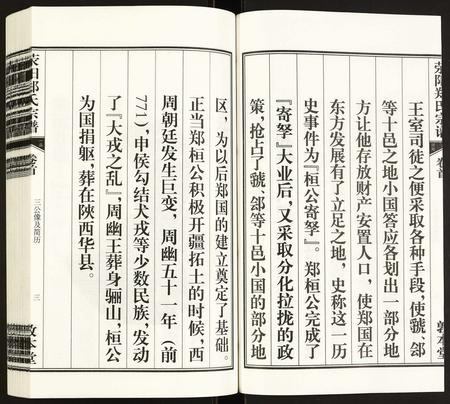 荥阳郑氏宗谱
卷首
王室司徒之便采取各种手段，使虢、郐
等十邑之地小国答应各划出一部分地
方让他存放财产安置人口，使郑国在
东方发展有了立足之地，史称这一历
史事件为『桓公寄孥』。郑桓公完成了
『寄孥』大业后，又采取分化拉拢的政
策，抢占了虢、郐等十邑小国的部分地
敦本堂
区，为以后郑国的建立奠定了基础。
正当郑桓公积极开疆拓土的时候，西
周朝廷发生巨变，周幽五十一年（前
771），申侯勾结犬戎等少数民族，发动
了『犬戎之乱』，周幽王葬身骊山，桓公
为国捐躯，葬在陕西华县。
荥阳郑氏宗谱
卷首
三公像及简历
三
敦本堂